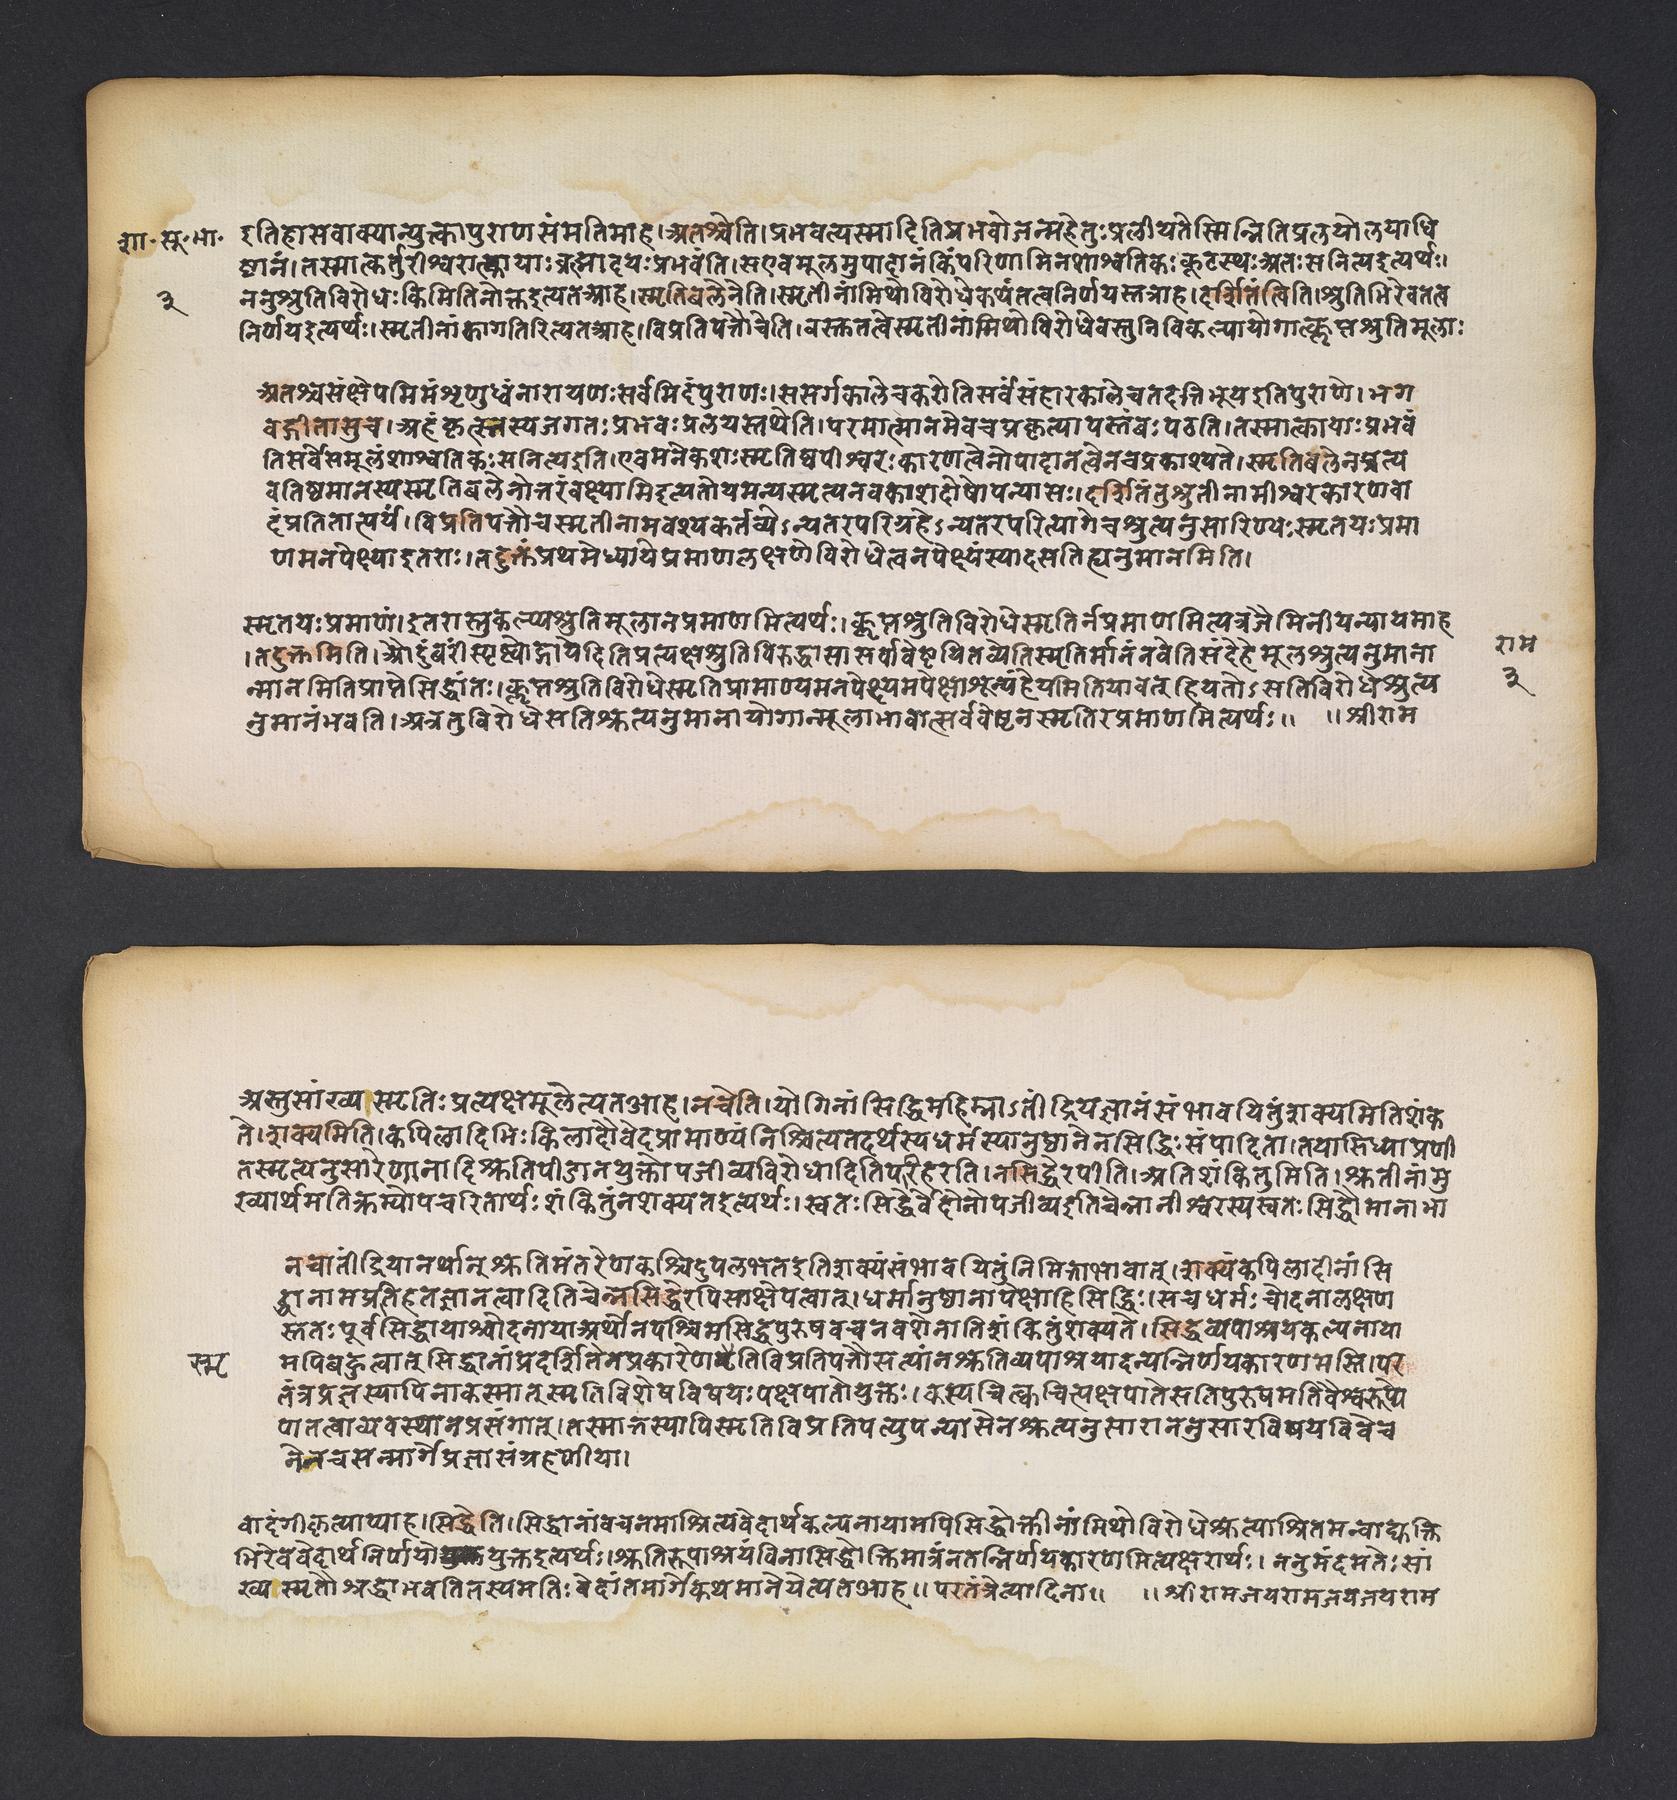 शा॰ सू॰ भा॰
३
इतिहासवाक्यान्युक्त्वापुराणसंमतिमाह।अतश्चेति।प्रभवत्यस्मादितिप्रभवोजन्महेतुःप्रलीयतेस्मिन्नितिप्रलयोलयाधि
ष्ठानं।तस्मात्कर्तुरीश्वरात्कायाःब्रह्मादयःप्रभवंति।सएवमूलमुपादानंकिंपरिणामिनशाश्वतिकःकूटस्थःअतःसनित्यइत्यर्थः।
ननुश्रुतिविरोधःकिमितिनोक्तइत्यतआह।स्मृतिबलेनेति।स्मृतीनांमिथोविरोधेकथंतत्वनिर्णयस्तत्राह।दर्शितंत्विति।श्रुतिभिरेवतत्व
निर्णयइत्यर्थः।स्मृतीनांकागतिरित्यतआह।विप्रतिपत्तौचेति।वस्तुतत्वेस्मृतीनांमिथोविरोधेवस्तुनिविकल्पायोगात्कॢप्तश्रुतिमूलाः
अतश्चसंक्षेपमिमंशृणुध्वंनारायणःसर्वमिदंपुराणः।ससर्गकालेचकरोतिसर्वंसंहारकालेचतदत्तिभूयइतिपुराणे।भग
वद्गीतासुच।अहंकृत्स्नस्यजगतःप्रभवःप्रलयस्तथेति।परमात्मानमेवचप्रकृत्यापस्तंबःपठति।तस्मात्कायाःप्रभवं
तिसर्वेसमूलंशाश्वतिकःसनित्यइति।एवमनेकशःस्मृतिष्वपीश्वरःकारणत्वेनोपादानत्वेनचप्रकाश्यते।स्मृतिबलेनप्रत्य
वतिष्ठमानस्यस्मृतिबलेनोत्तरंवक्ष्यामिइत्यतोयमन्यस्मृत्यनवकाशदोषोपन्यासः।दर्शितंतुश्रुतीनामीश्वरकारणवा
दंप्रतितात्पर्यं।विप्रतिपत्तौचस्मृतीनामवश्यकर्तव्येऽन्यतरपरिग्रहेऽन्यतरपरित्यागेचश्रुत्यनुसारिण्यःस्मृतयःप्रमा
णमनपेक्ष्याइतराः।तदुक्तंप्रथमेध्यायेप्रमाणलक्षणेविरोधेत्वनपेक्ष्यंस्यादसतिह्यनुमानमिति।
स्मृतयःप्रमाणं।इतरास्तुकल्प्यश्रुतिमूलानप्रमाणमित्यर्थः।कॢप्तश्रुतिविरोधेस्मृतिर्नप्रमाणमित्यत्रजैमिनीयन्यायमाह
।तदुक्तमिति।औदुंबरींस्पृष्ट्वोद्गायेदितिप्रत्यक्षश्रुतिविरुद्धासासर्वावेष्टयितव्येतिस्मृतिर्मानंनवेतिसंदेहेमूलश्रुत्यनुमाना
न्मानमितिप्राप्तेसिद्धांतः।कॢप्तश्रुतिविरोधेस्मृतिप्रामाण्यमनपेक्ष्यमपेक्षाशून्यंहेयमितियावत्हियतोऽसतिविरोधेश्रुत्य
नुमानंभवति।अत्रतुविरोधेसतिश्रुत्यनुमानायोगान्मूलाभावात्सर्ववेष्टनस्मृतिरप्रमाणमित्यर्थः॥ ॥श्रीराम
राम
३
अस्तुसांख्यस्मृतिःप्रत्यक्षमूलेत्यतआह।नचेति।योगिनांसिद्धिमहिम्नाऽतींद्रियज्ञानंसंभावयितुंशक्यमितिशंक
ते।शक्यमिति।कपिलादिभिःकिलादौवेदप्रामाण्यंनिश्चित्यतदर्थस्यधर्मस्यानुष्ठानेनसिद्धिःसंपादिता।तयासिध्याप्रणी
तस्मृत्यनुसारेणानादिश्रुतिपीडानयुक्तोपजीव्यविरोधादितिपरिहरति।नसिद्धेरपीति।अतिशंकितुमिति।श्रुतीनांमु
ख्यार्थमतिक्रम्योपचरितार्थःशंकितुंनशक्यतइत्यर्थः।स्वतःसिद्धेर्वेदोनोपजीव्यइतिचेन्नानीश्वरस्यस्वतःसिद्धौमानाभा
नचातींद्रियानर्थान्श्रुतिमंतरेणकश्चिदुपलभतइतिशक्यंसंभावयितुंनिमित्ताभावात्।शक्यंकपिलादीनांसि
द्धानामप्रतिहतज्ञानत्वादितिचेन्नसिद्धेरपिसापेक्षत्वात्।धर्मानुष्ठानापेक्षाहिसिद्धिः।सचधर्मःचोदनालक्षण
स्ततःपूर्वसिद्धायाश्चोदनायाअर्थोनपश्चिमसिद्धपुरुषवचनवशेनातिशंकितुंशक्यते।सिद्धव्यपाश्रयकल्पनाया
मपिबहुत्वात्सिद्धानांप्रदर्शितेनप्रकारेणतिविप्रतिपत्तौसत्यांनश्रुतिव्यपाश्रयादन्यन्निर्णयकारणमस्ति।पर
स्मृ
तंत्रप्रज्ञस्यापिनाकस्मात्स्मृतिविशेषविषयःपक्षपातोयुक्तः।कस्यचित्क्वचित्पक्षपातेसतिपुरुषमतिवैश्वरूप्ये
णतत्वाव्यवस्थानप्रसंगात्।तस्मात्तस्यापिस्मृतिविप्रतिपत्युपन्यासेनश्रुत्यनुसाराननुसारविषयविवेच
नेनचसन्मार्गेप्रज्ञासंग्रहणीया।
वादंगीकृत्याप्याह।सिद्धेति।सिद्धानांवचनमाश्रित्यवेदार्थकल्पनायामपिसिद्धोक्तीनांमिथोविरोधेश्रुत्याश्रितमन्वाद्युक्ति
भिरेववेदार्थनिर्णयोयुक्तइत्यर्थः।श्रुतिरूपाश्रयंविनासिद्धोक्तिमात्रंनतन्निर्णयकारणमित्यक्षरार्थः।ननुमंदमतेःसां
ख्यस्मृतौश्रद्धाभवतितस्यमतिःवेदांतमार्गेकथमानेयेत्यतआह॥परतंत्रेत्यादिना॥ ॥श्रीरामजयरामजयजयराम